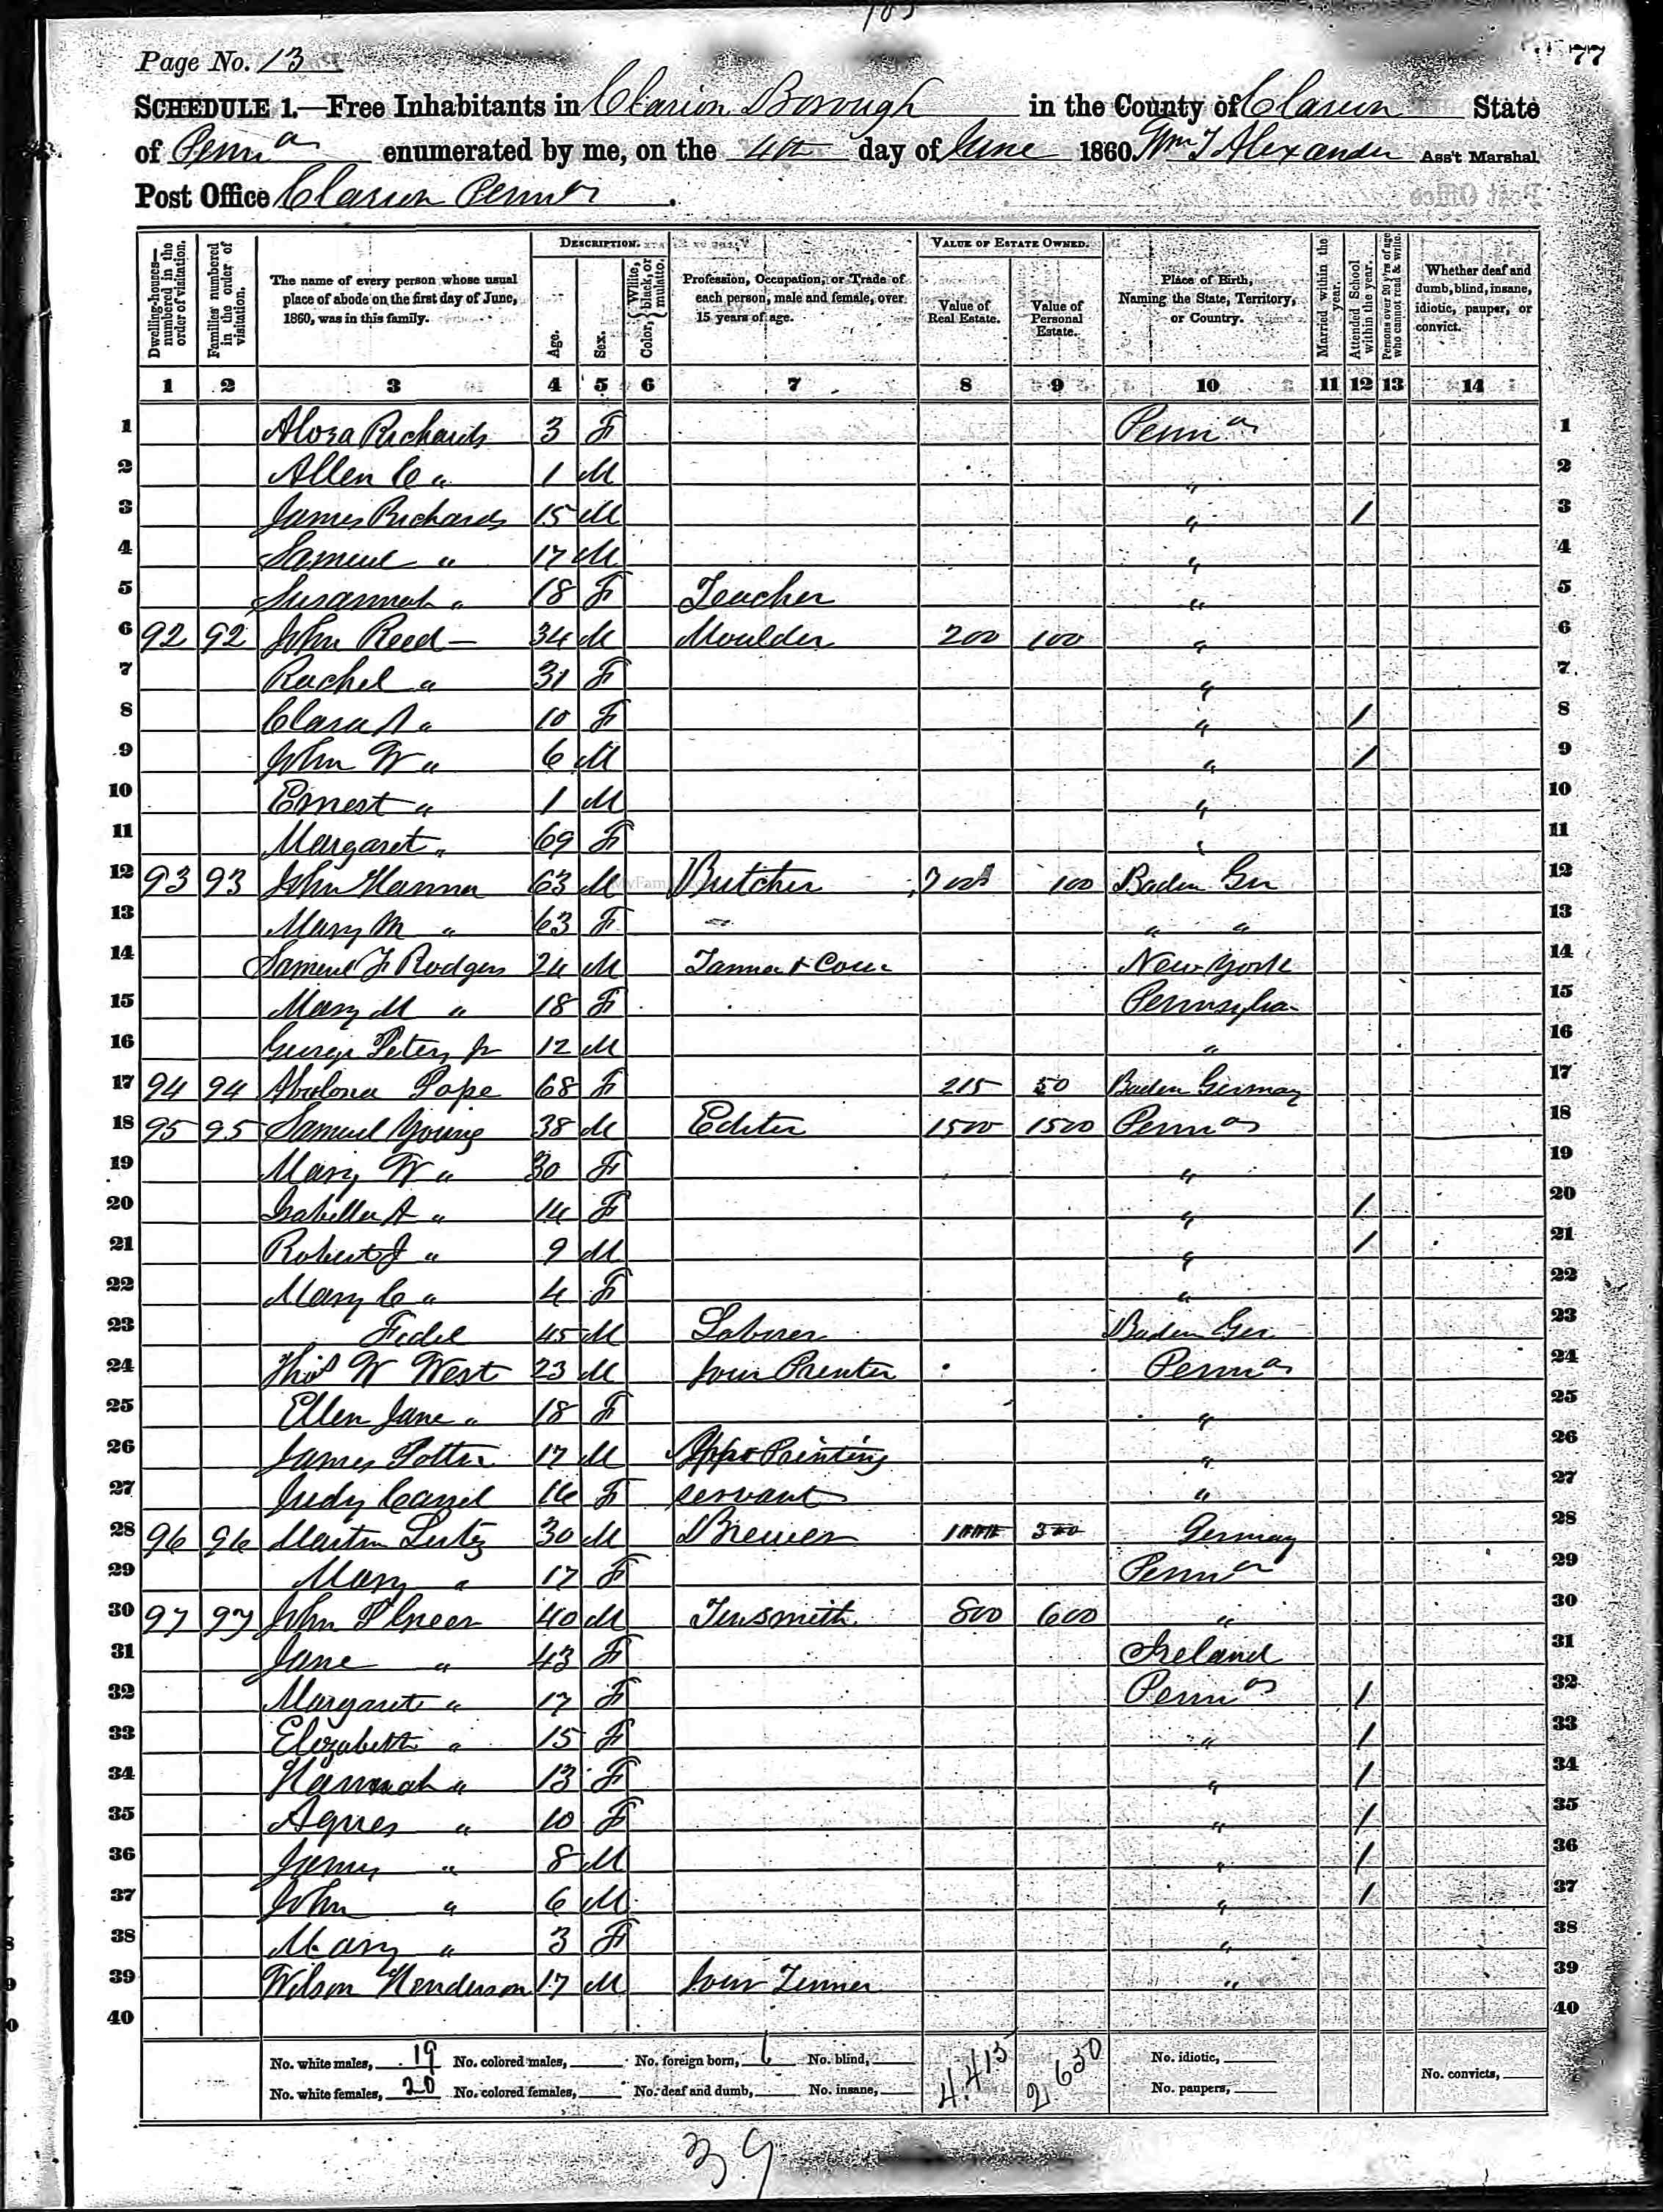 Page No. 13
77
SCHEDULE 1.—Free Inhabitants in Clarion Borough in the County of Clarion State
of Penna enumerated by me, on the 4th day of June 1860. Wm J Alexander Ass't Marshal.
Post Office Clarion Penna.
DESCRIPTION. VALUE OF ESTATE OWNED.
Dwelling-houses—numbered in the order of visitation.
Families numbered in the order of visitation.
The name of every person whose usual place of abode on the first day of June, 1860, was in this family.
Age.
Sex.
Color, { White, black, or mulatto.
Profession, Occupation, or Trade of each person, male and female, over 15 years of age.
Value of Real Estate.
Value of Personal Estate.
Place of Birth, Naming the State, Territory, or Country.
Married within the year.
Attended School within the year.
Persons over 20 y'rs of age who cannot read & write.
Whether deaf and dumb, blind, insane, idiotic, pauper, or convict.
1 2 3 4 5 6 7 8 9 10 11 12 13 14
1 Richards 3 F Penna 1
2 Allen C " 1 M " 2
3 James Richards 15 M " / 3
4 Samuel " 17 M " 4
5 Susannah " 18 F Teacher " 5
6 92 92 John Reed — 34 M Moulder 200 100 " 6
7 Rachel " 31 F " 7
8 Clara A " 10 F " / 8
9 John W " 6 M " / 9
10 Ernest " 1 M " 10
11 Margaret " 69 F " 11
12 93 93 John Hanna 63 M Butcher 700 100 Baden Ger 12
13 Mary M " 63 F " " 13
14 Samuel F Rodgers 24 M Tanner & Cour New York 14
15 Mary M " 18 F Pennsylva 15
16 George Peters Jr 12 M " 16
17 94 94 Pope 68 F 215 50 Baden Germay 17
18 95 95 Samuel Young 38 M Editer 1500 1500 Penna 18
19 Mary W " 30 F " 19
20 Isabella A " 14 F " / 20
21 Robert J " 9 M " / 21
22 Mary C " 4 F " 22
23 Fidel 45 M Laborer Baden Ger 23
24 Thos W West 23 M Jour Printer Penna 24
25 Ellen Jane " 18 F " 25
26 James Potter 17 M Appr Printing " 26
27 Judy 16 F servant " 27
28 96 96 Martin Lutz 30 M Brewer 1000 300 Germay 28
29 Mary " 17 F Penna 29
30 97 97 John Greer 40 M Tinsmith 800 600 " 30
31 Jane " 43 F Ireland 31
32 Margarett " 17 F Penna / 32
33 Elizabeth " 15 F " / 33
34 Hannah " 13 F " / 34
35 Agnes " 10 F " / 35
36 James " 8 M " / 36
37 John " 6 M " / 37
38 Mary " 3 F " 38
39 Wilson Henderson 17 M Jour Tinner " 39
40 40
No. white males, 19 No. colored males, No. foreign born, 6 No. blind, 4,415 2,650 No. idiotic,
No. white females, 20 No. colored females, No. deaf and dumb, No. insane, No. paupers, No. convicts,
39